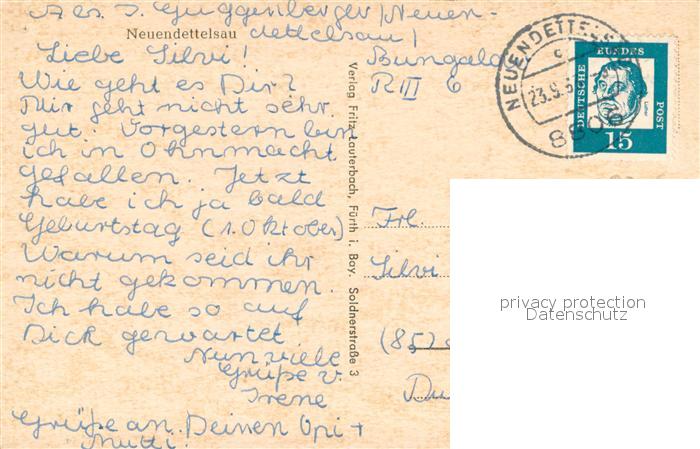 Abs. I. Guggenberger, Neuen-
dettelsau,
Bungalo
R III 6
Neuendettelsau
Liebe Silvi!
Wie geht es Dir?
Mir geht nicht sehr
gut. Vorgestern bin
ich in Ohnmacht
gefallen. Jetzt
habe ich ja bald
Geburtstag (1. Oktober)
Warum seid ihr
nicht gekommen.
Ich habe so auf
Dick gewartet.
Nun viele
Grüße v.
Irene
Grüße an Deinen Opi +
Mutti.
Verlag Fritz Lauterbach, Fürth i. Bay. Soldnerstraße 3
NEUENDETTELS
c
23.9.6
8806
DEUTSCHE
BUNDES
POST
Luther
15
Frl.
Silvi
(85)
privacy protection
Datenschutz